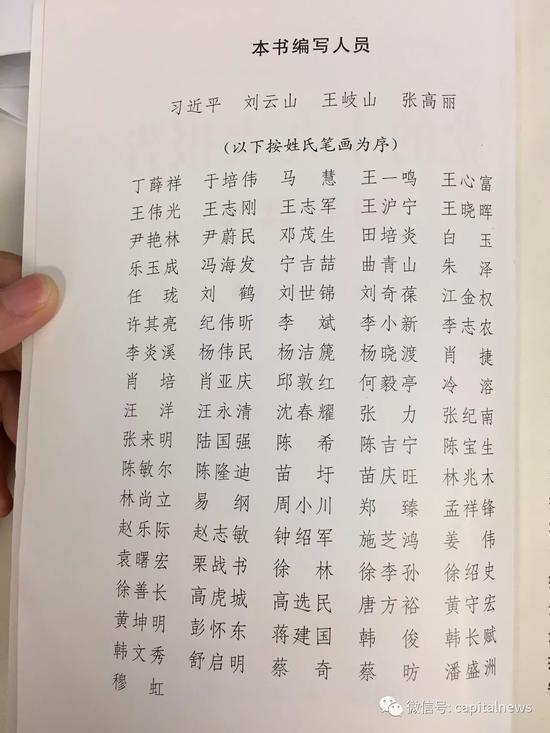 本书编写人员
习近平 刘云山 王岐山 张高丽
(以下按姓氏笔画为序)
丁薛祥 于培伟 马慧 王一鸣 王心富
王伟光 王志刚 王志军 王沪宁 王晓晖
尹艳林 尹蔚民 邓茂生 田培炎 白玉
乐玉成 冯海发 宁吉喆 曲青山 朱泽
任珑 刘鹤 刘世锦 刘奇葆 江金权
许其亮 纪伟昕 李斌 李小新 李志农
李炎溪 杨伟民 杨洁篪 杨晓渡 肖捷
肖培 肖亚庆 邱敦红 何毅亭 冷溶
汪洋 汪永清 沈春耀 张力 张纪南
张来明 陆国强 陈希 陈吉宁 陈宝生
陈敏尔 陈隆迪 苗圩 苗庆旺 林兆木
林尚立 易纲 周小川 郑臻 孟祥锋
赵乐际 赵志敏 钟绍军 施芝鸿 姜伟
袁曙宏 栗战书 徐林 徐李孙 徐绍史
徐善长 高虎城 高选民 唐方裕 黄守宏
黄坤明 彭怀东 蒋建国 韩俊 韩长赋
韩文秀 舒启明 蔡奇 蔡昉 潘盛洲
穆虹
微信号: capitalnews